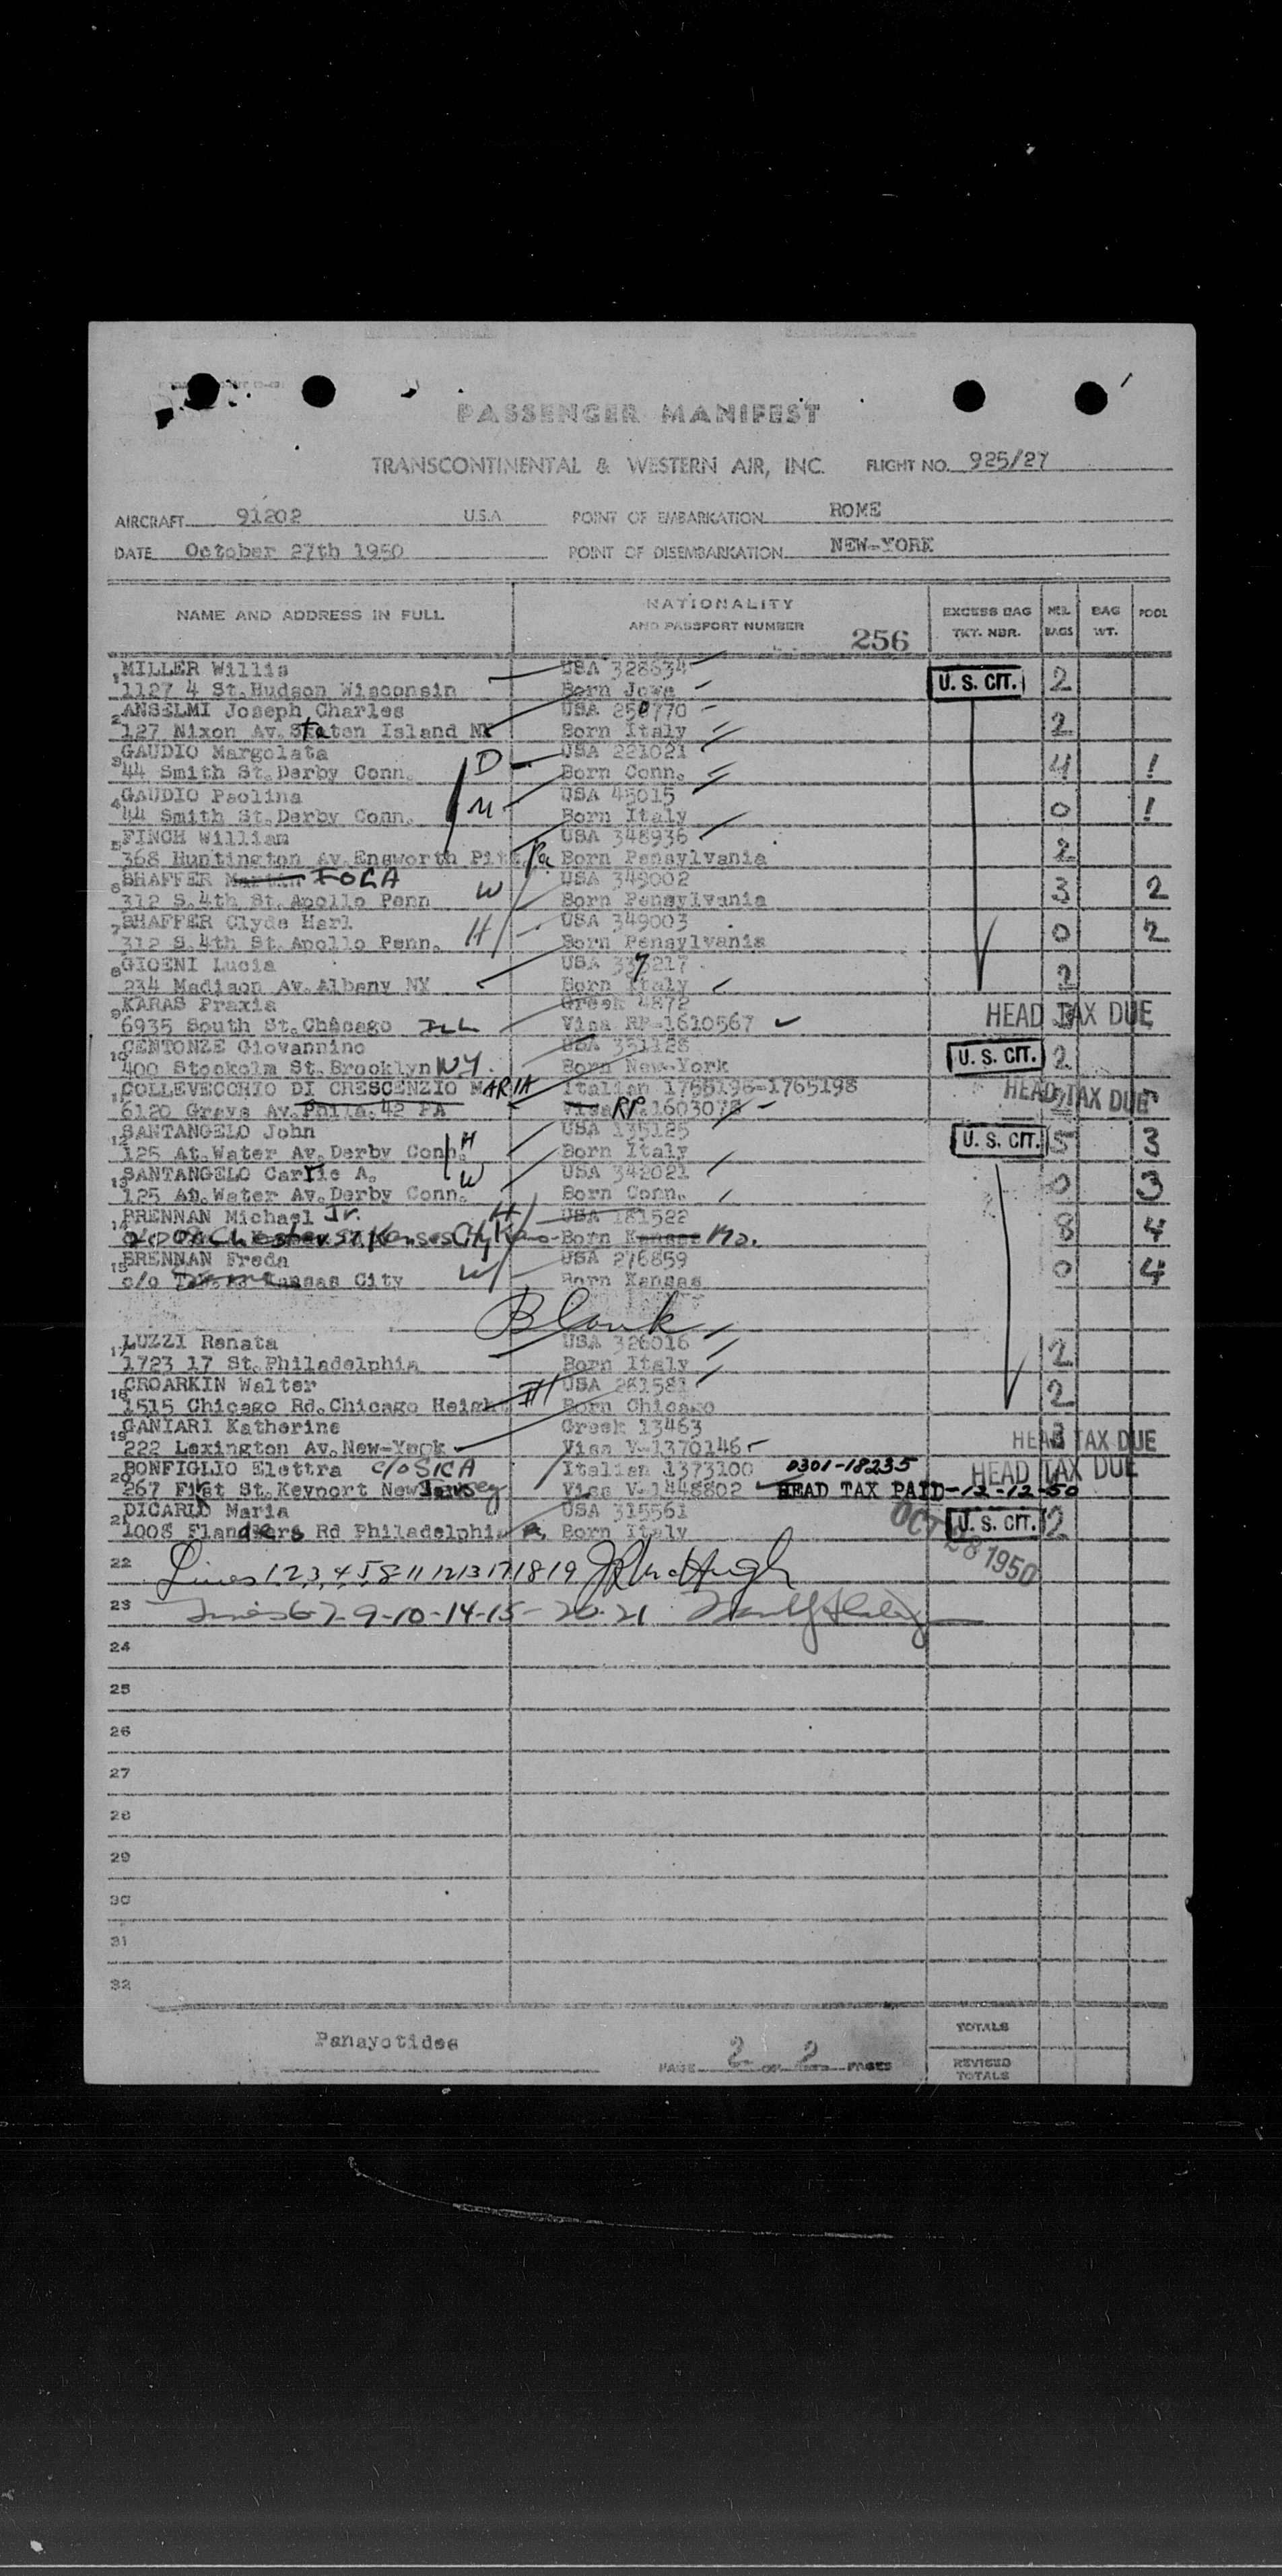 PASSENGER MANIFEST
TRANSCONTINENTAL & WESTERN AIR, INC. FLIGHT NO. 925/27
AIRCRAFT 91202 U.S.A POINT OF EMBARKATION ROME
DATE October 27th 1950 POINT OF DISEMBARKATION NEW-YORK
NAME AND ADDRESS IN FULL NATIONALITY AND PASSPORT NUMBER 256 EXCESS BAG TKT. NBR. BAGS BAG WT. POOL
1 MILLER Willis USA 328634 U. S. CIT. 2
1127 4 St.Hudson Wisconsin Born Jowa
2 ANSELMI Joseph Charles USA 250770 2
127 Nixon Av.Staten Island NY Born Italy
3 GAUDIO Margolata D USA 221021 4 1
44 Smith St.Derby Conn. Born Conn.
4 GAUDIO Paolina M USA 45015 0 1
44 Smith St.Derby Conn. Born Italy
5 FINCH William USA 348936 2
368 Huntington Av.Ensworth Pitt Pa Born Pensylvania
6 SHAFFER W USA 349002 3 2
312 S.4th St.Apollo Penn Born Pensylvania
7 SHAFFER Clyde Harl H USA 349003 0 2
312 S.4th St.Apollo Penn. Born Pensylvania
8 GIOENI Lucia USA 2
234 Madison Av.Albany NY Born Italy
9 KARAS Praxia Greek 4872 HEAD TAX DUE
6935 South St.Chicago Ill Visa RP-1610567
10 CENTONZE Giovannino USA 331128 U. S. CIT. 2
400 Stockolm St.Brooklyn NY. Born New-York
11 COLLEVECCHIO DI CRESCENZIO MARIA Italian 1765196-1765198 HEAD TAX DUE
6120 Grays Av.Phila.42 PA Visa RP 1603078
12 SANTANGELO John H USA 135125 U. S. CIT. 5 3
125 At.Water Av.Derby Conn. Born Italy
13 SANTANGELO Carrie A. W USA 342021 0 3
125 At.Water Av.Derby Conn. Born Conn.
14 BRENNAN Michael Jr. H USA 181522 8 4
Chester St Kansas City Kans- Born Kansas Mo.
15 BRENNAN Freda W USA 276859 0 4
c/o Kansas City Born Kansas
Blank
17 LUZZI Renata USA 326016 2
1723 17 St.Philadelphia Born Italy
18 CROARKIN Walter USA 261581 2
1515 Chicago Rd.Chicago Height Ill Born Chicago
19 GANIARI Katherine Greek 13463 HEAD TAX DUE
222 Lexington Av.New-York Visa V-1370146
20 BONFIGLIO Elettra c/o SICA Italian 1373100 0301-18235 HEAD TAX DUE
267 First St.Keyport New Jersey Visa V-1448802 HEAD TAX PAID-12-12-50
21 DICARLO Maria USA 315561 U. S. CIT. 2
1008 Flanders Rd Philadelphia Pa Born Italy
OCT 28 1950
22 Lines 1,2,3,4,5,8 11 12 13 17 18 19
23 Lines 6-7-9-10-14-15-20-21
24
25
26
27
28
29
30
31
32
Panayotides
PAGE 2 OF 2 PAGES
TOTALS
REVISED TOTALS